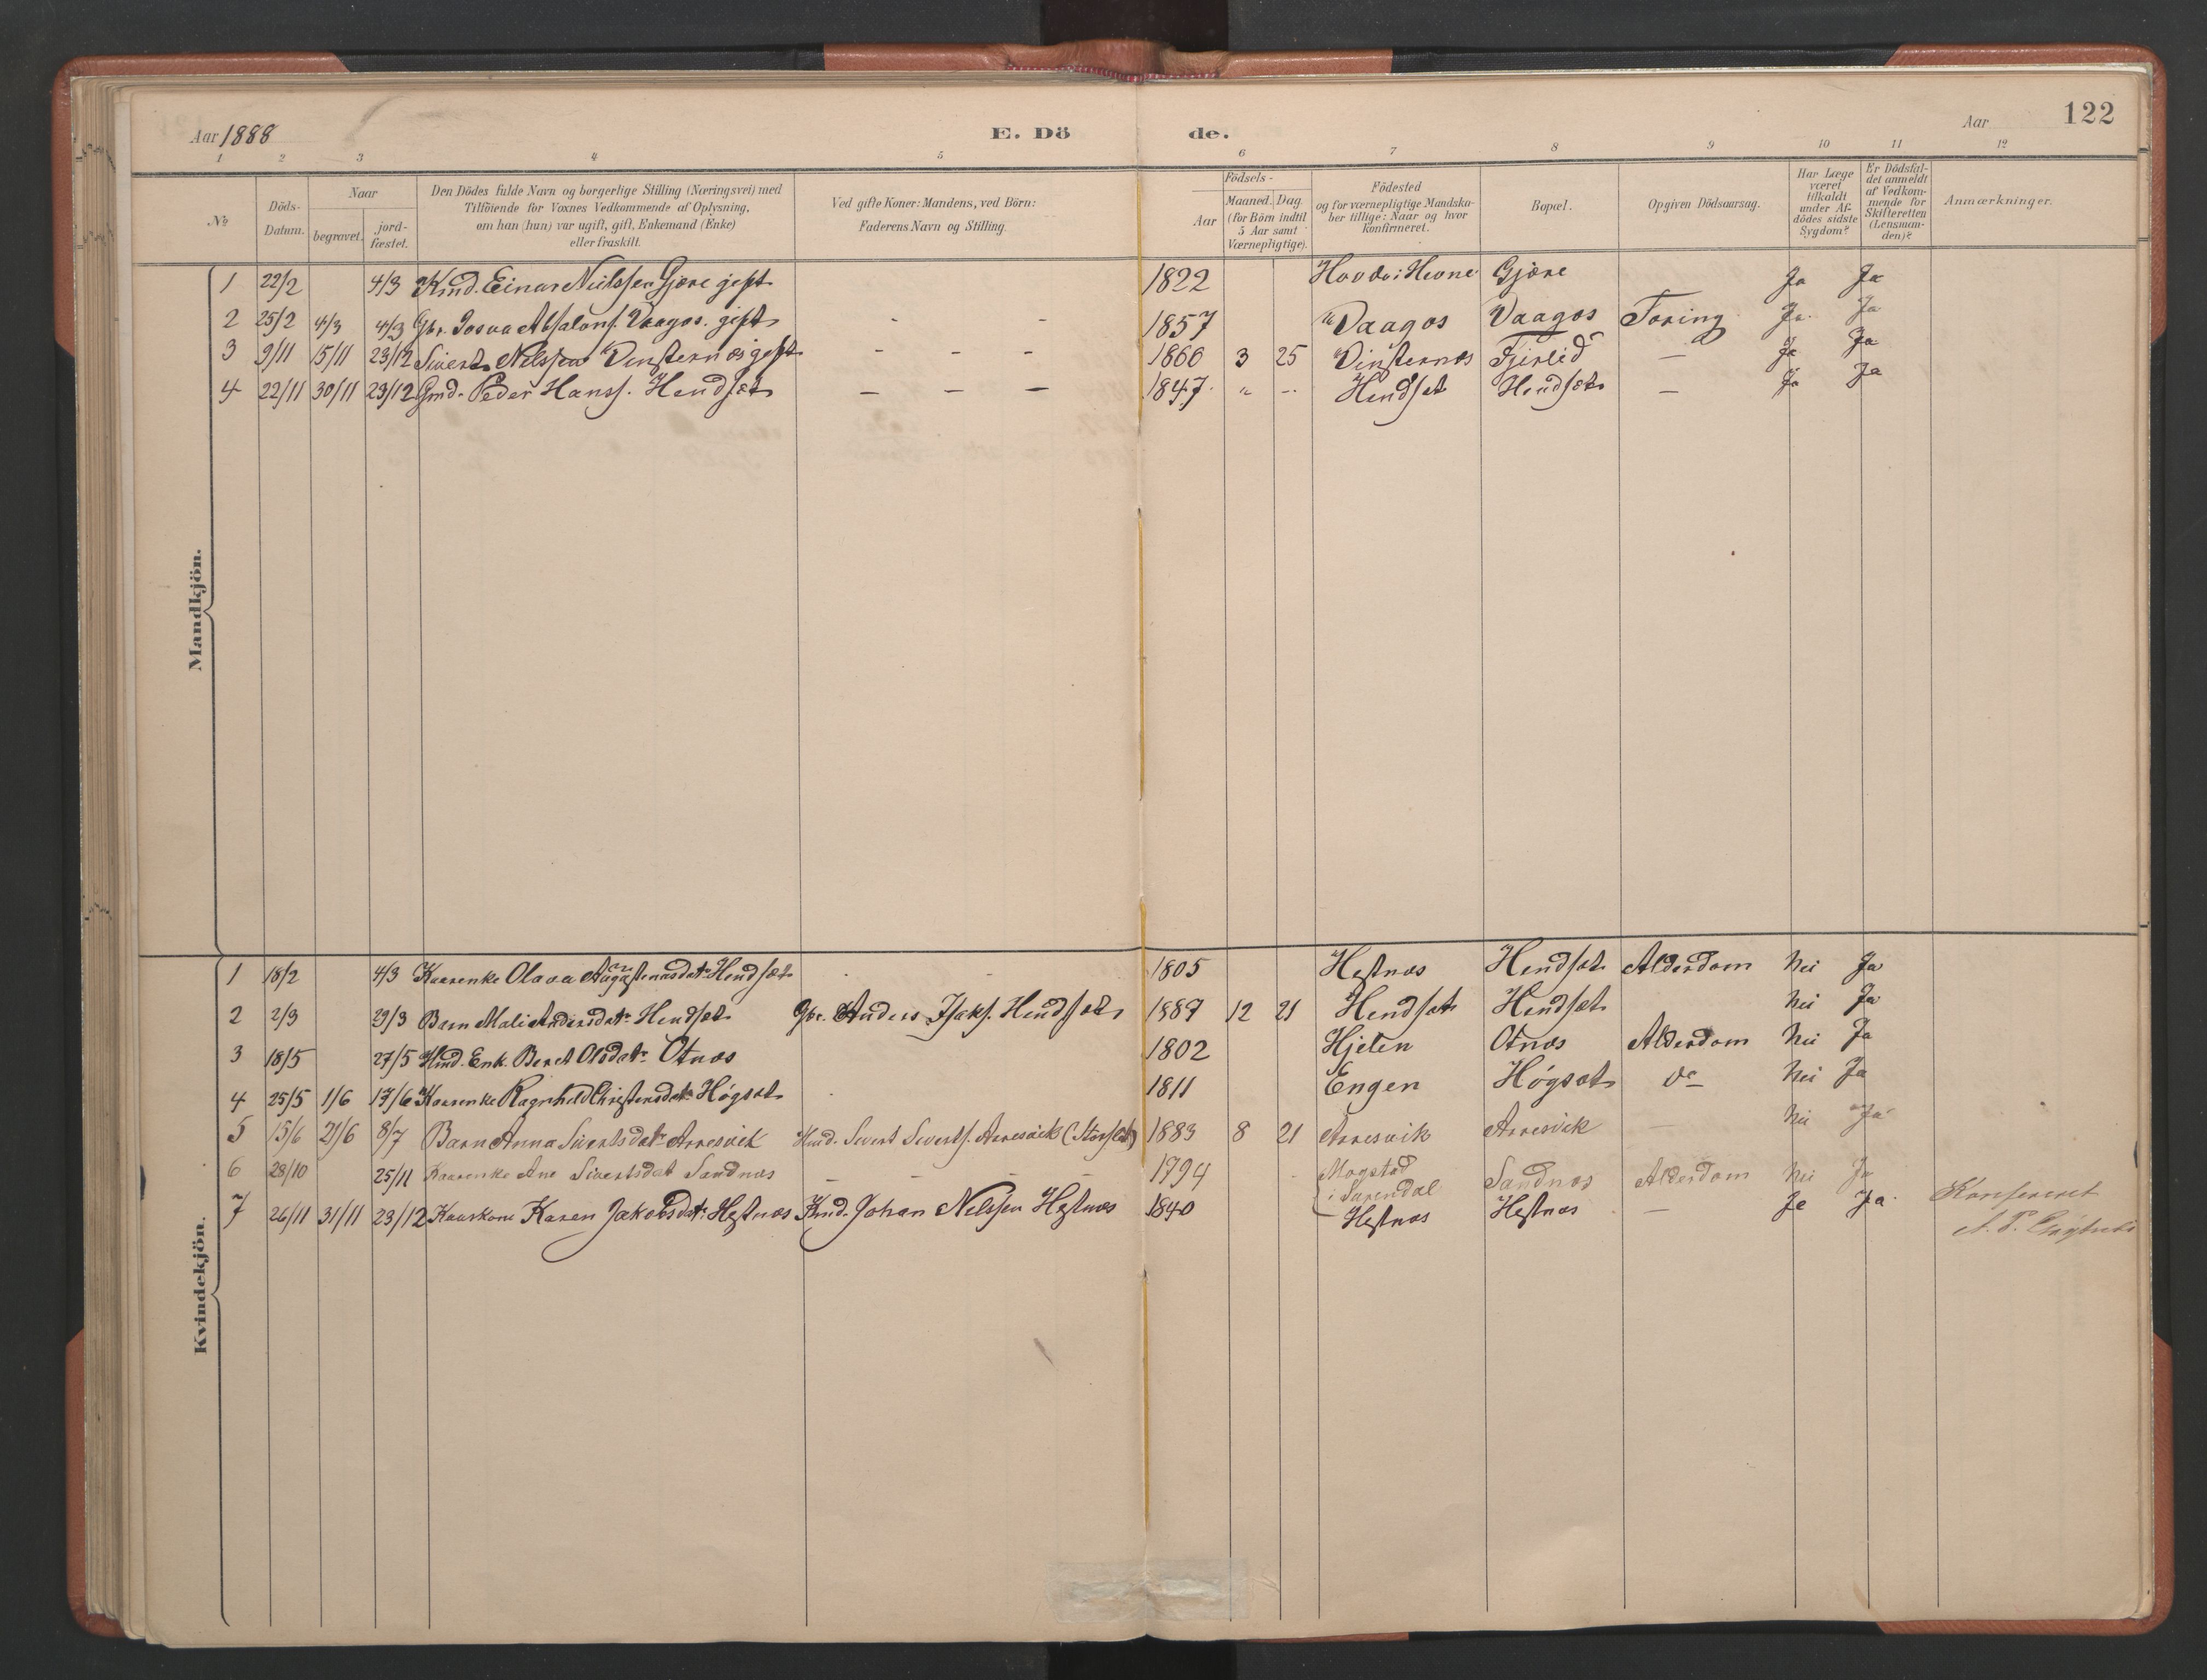 Aar 1888 E. Dö de. Aar 122
1 2 3 4 5 6 7 8 9 10 11 12
№
Döds-Datum.
Naar
begravet.
jord-fæstet.
Den Dödes fulde Navn og borgerlige Stilling (Næringsvei) med
Tilföiende for Voxnes Vedkommende af Oplysning,
om han (hun) var ugift, gift, Enkemand (Enke)
eller fraskilt.
Ved gifte Koner: Mandens, ved Börn:
Faderens Navn og Stilling.
Födsels-
Aar
Maaned. Dag
(for Börn indtil
5 Aar samt
Værnepligtige).
Födested
og for værnepligtige Mandska-
ber tillige: Naar og hvor
konfirmeret.
Bopæl.
Opgiven Dödsaarsag.
Har Læge
været
tilkaldt
under Af-
dödes sidste
Sygdom?
Er Dödsfal-
det anmeldt
af Vedkom-
mende for
Skifteretten
(Lensman-
den)?
Anmærkninger.
Mandkjön.
1 22/2 4/3 Kmd. Einar Neilssen Gjære gift 1822 Hovde i Hevne Gjære Ja Ja
2 25/2 4/3 4/3 Gbr. Josva Absalons. Vaagos. gift - - 1857 Vaagos Vaagos Tæring Ja. Ja
3 9/11 15/11 23/12 Sivert Nelssen Vinsternæs gift - - - 1860 3 25 Vinsternæs Fjerlid — Ja Ja
4 22/11 30/11 23/12 Gmd. Peder Hanss. Hendset — — — 1847. " -- Hendset Hendset — Ja Ja
Kvindekjön.
1 18/2 4/3 Kaarenke Olava Hendset 1805 Hestnæs Hendset Alderdom Nei Ja
2 2/3 29/3 Barn Mali Andersdatr Hendset Gbr. Anders Isaks. Hendset 1887 12 21 Hendset Hendset Nei Ja
3 18/5 27/5 Hmd. Enk. Beret Olsdatr Otnæs 1802 Hjelen Otnæs Alderdom Nei Ja
4 25/5 1/6 17/6 Kaarenke Ragnhild Christensdatr Høgset 1811 Engen Høgset do Nei Ja
5 15/6 21/6 8/7 Barn Anna Sivertsdatr Arresvik Hmd. Sivert Siverts. Arresvik (Storset) 1883 8 21 Arresvik Arresvik — Nei Ja
6 28/10 25/11 Kaarenke Ane Sivertsdat Sandnæs — — — 1794 Mogstad
i Surendal Sandnæs Alderdom Nei Ja
7 26/11 31/11 23/12 Kaarkone Karen Jakobsdatr Hestnæs Kmd. Johan Nelssen Hestnæs 1840 Hestnæs Hestnæs — Ja Ja. Konfereret